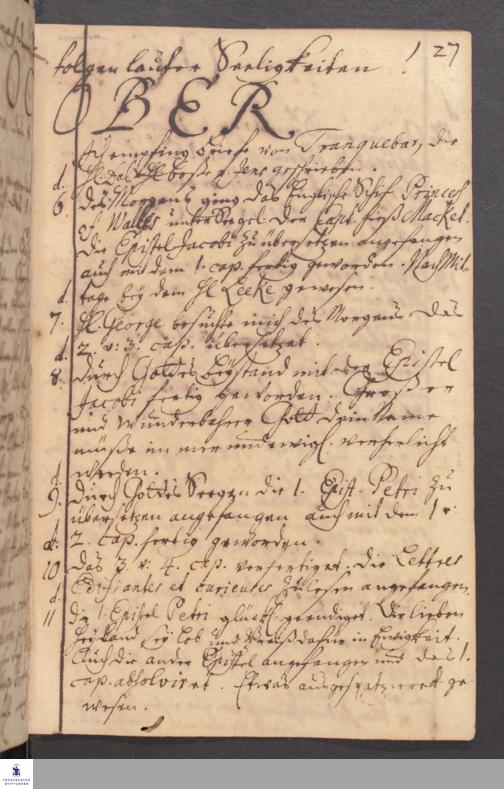 folgen laufer Seeligkeiten! 127
OBER
Ich empfing briefe von Tranquebar, die
d. H. Dal H. Bosse u. Jens geschrieben.
6. des Morgens ging das Englische Schif Princess
of Walles unter Seegel der Capt. hieß Macket.
die Epistel Jacobi zu übersetzen angefangen
auch mit dem 1. cap. fertig geworden. Nach Mit-
d. tage bey dem H. Leeke gewesen.
7. H. George besuchte mich des Morgens das
d. 2. v: 3. cap. übersetzet.
8. durch Gottes beystand mit der Epistel
Jacobi fertig geworden. Großer
und Wunderbahrer Gott dein Name
müße immer und ewigl. verherlicht
d. werden.
9. durch Gottes Seegen die 1. Epist. Petri zu
übersetzen angefangen auch mit dem 1 v:
d. 2. cap. fertig geworden.
10 das 3 v: 4. cap. verfertiget. die Lettres
d. Edifiantes et curieuses zu lesen angefangen.
11 die 1 Epistel Petri glückl. geendiget. Dir lieben
Heiland sey Lob und Preiß dafür in Ewigkeit.
Auch die ander Epistel angefangen und das 1.
cap. absolviret. Etwas ausgespatzieret ge
wesen.
FRANCKESCHE
STIFTUNGEN